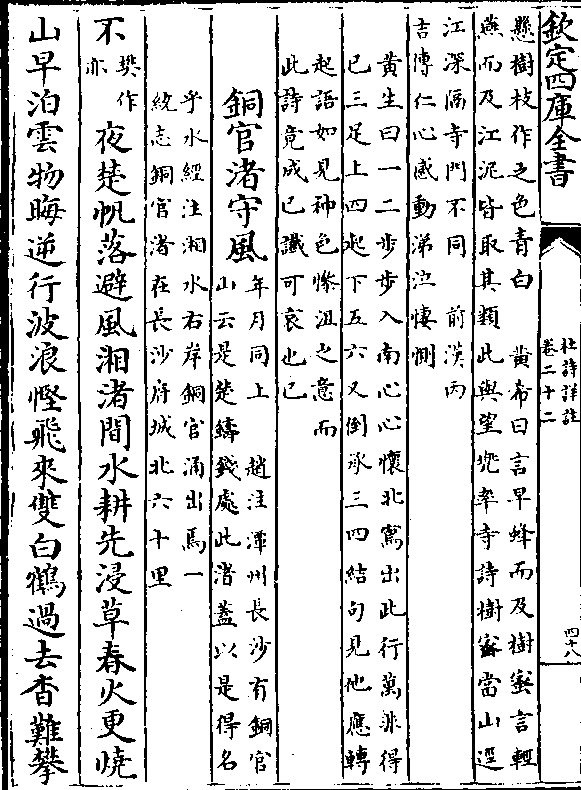 欽定四庫全書
杜詩詳註
卷二十二
四十八
懸樹枝作之色青白　黄希曰言早蜂而及樹蜜言輕
燕而及江泥皆取其類此與望兜率寺詩樹密當山逕
江深隔寺門不同　前漢丙
吉傳仁心感動涕泣悽惻
黄生曰一二步步入南心心懷北寫出此行萬非得
已三足上四起下五六又倒承三四結句見他應轉
起語如見神色慘沮之意而
此詩竟成已讖可哀也已
銅官渚守風
年月同上　趙注潭州長沙有銅官
山云是楚鑄錢處此渚蓋以是得名
乎水經注湘水右岸銅官涌出焉一
統志銅官渚在長沙府城北六十里
不
樊作
亦
夜楚帆落避風湘渚間水耕先浸草春火更燒
山早泊雲物晦逆行波浪慳飛來雙白鶴過去杳難攀